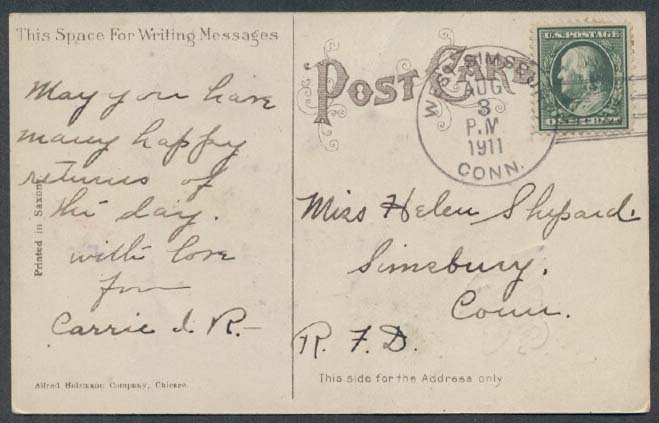 This Space For Writing Messages
May you have
many happy
returns of
the day.
with love
from
Carrie I. R.—
Printed in Saxony
Alfred Holzmann Company, Chicago.
POST CARD
WEST SIMSBURY
AUG
3
P.M
1911
CONN.
U.S. POSTAGE
ONE CENT
Miss Helen Shepard.
Simsbury.
Conn.
R. F. D.
This side for the Address only